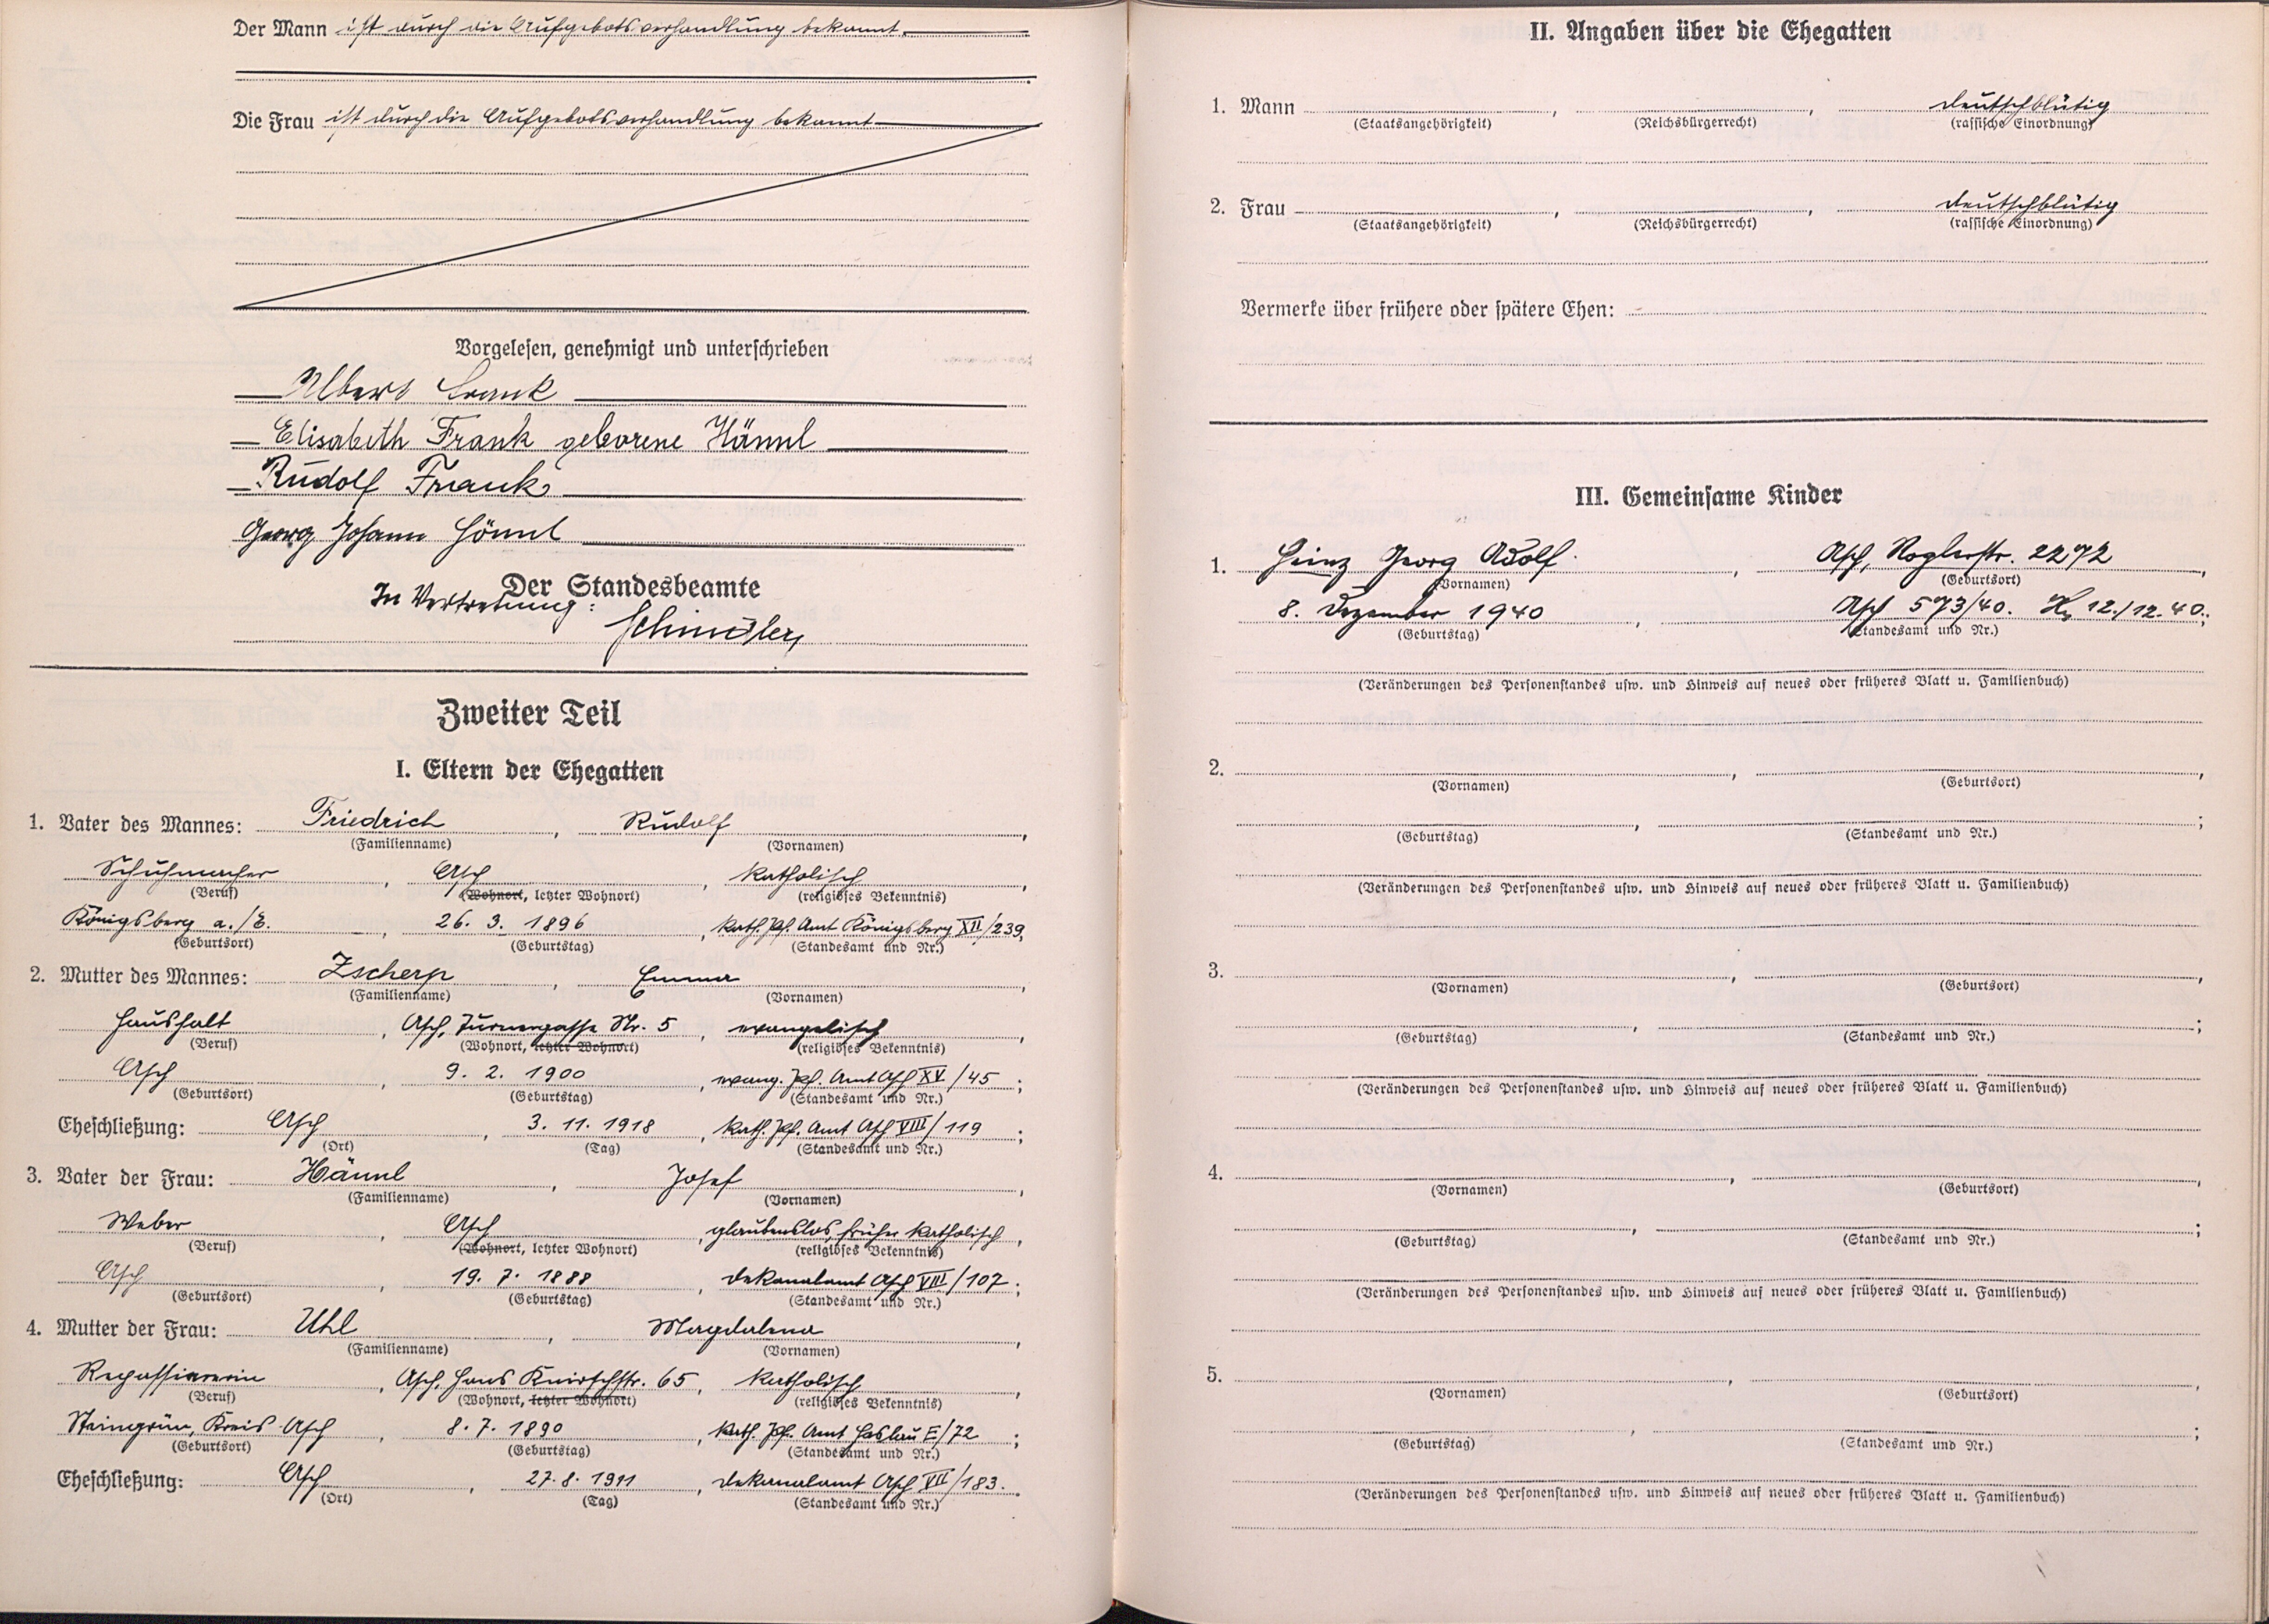 Der Mann ist durch die Aufgebotsverhandlung bekannt.
Die Frau ist durch die Aufgebotsverhandlung bekannt
Vorgelesen, genehmigt und unterschrieben
Albert Frank
Elisabeth Frank geborene Hännl
Rudolf Frank
Georg Johann Hönnl
Der Standesbeamte
In Vertretung:
Schindler
Zweiter Teil
I. Eltern der Ehegatten
1. Vater des Mannes: Friedrich, Rudolf,
(Familienname) (Vornamen)
Schuhmacher, Asch, katholisch,
(Beruf) (Wohnort, letzter Wohnort) (religiöses Bekenntnis)
Königsberg a./E., 26. 3. 1896, kath. Pf. Amt Königsberg XII/239,
(Geburtsort) (Geburtstag) (Standesamt und Nr.)
2. Mutter des Mannes: Zscherp, Emma,
(Familienname) (Vornamen)
Haushalt, Asch, Turnergasse Nr. 5, evangelisch,
(Beruf) (Wohnort, letzter Wohnort) (religiöses Bekenntnis)
Asch, 9. 2. 1900, evang. Pf. Amt Asch XV/45;
(Geburtsort) (Geburtstag) (Standesamt und Nr.)
Eheschließung: Asch, 3. 11. 1918, kath. Pf. Amt Asch VIII/119;
(Ort) (Tag) (Standesamt und Nr.)
3. Vater der Frau: Hännl, Josef,
(Familienname) (Vornamen)
Weber, Asch, glaubenslos, früher katholisch,
(Beruf) (Wohnort, letzter Wohnort) (religiöses Bekenntnis)
Asch, 19. 7. 1888, Dekanalamt Asch VIII/107;
(Geburtsort) (Geburtstag) (Standesamt und Nr.)
4. Mutter der Frau: Uhl, Magdalena,
(Familienname) (Vornamen)
Repassiererin, Asch, Hans Knirschstr. 65, katholisch,
(Beruf) (Wohnort, letzter Wohnort) (religiöses Bekenntnis)
Steingrün, Kreis Asch, 8. 7. 1890, kath. Pf. Amt Haslau E/72;
(Geburtsort) (Geburtstag) (Standesamt und Nr.)
Eheschließung: Asch, 27. 8. 1911, Dekanalamt Asch VII/183.
(Ort) (Tag) (Standesamt und Nr.)
II. Angaben über die Ehegatten
1. Mann , , deutschblütig
(Staatsangehörigkeit) (Reichsbürgerrecht) (rassische Einordnung)
2. Frau , , deutschblütig
(Staatsangehörigkeit) (Reichsbürgerrecht) (rassische Einordnung)
Vermerke über frühere oder spätere Ehen:
III. Gemeinsame Kinder
1. Heinz Georg Adolf, Asch, Roglerstr. 2272,
(Vornamen) (Geburtsort)
8. Dezember 1940, Asch 573/40. 12./12. 40.;
(Geburtstag) (Standesamt und Nr.)
(Veränderungen des Personenstandes usw. und Hinweis auf neues oder früheres Blatt u. Familienbuch)
2. , ,
(Vornamen) (Geburtsort)
, ;
(Geburtstag) (Standesamt und Nr.)
(Veränderungen des Personenstandes usw. und Hinweis auf neues oder früheres Blatt u. Familienbuch)
3. , ,
(Vornamen) (Geburtsort)
, ;
(Geburtstag) (Standesamt und Nr.)
(Veränderungen des Personenstandes usw. und Hinweis auf neues oder früheres Blatt u. Familienbuch)
4. , ,
(Vornamen) (Geburtsort)
, ;
(Geburtstag) (Standesamt und Nr.)
(Veränderungen des Personenstandes usw. und Hinweis auf neues oder früheres Blatt u. Familienbuch)
5. , ,
(Vornamen) (Geburtsort)
, ;
(Geburtstag) (Standesamt und Nr.)
(Veränderungen des Personenstandes usw. und Hinweis auf neues oder früheres Blatt u. Familienbuch)